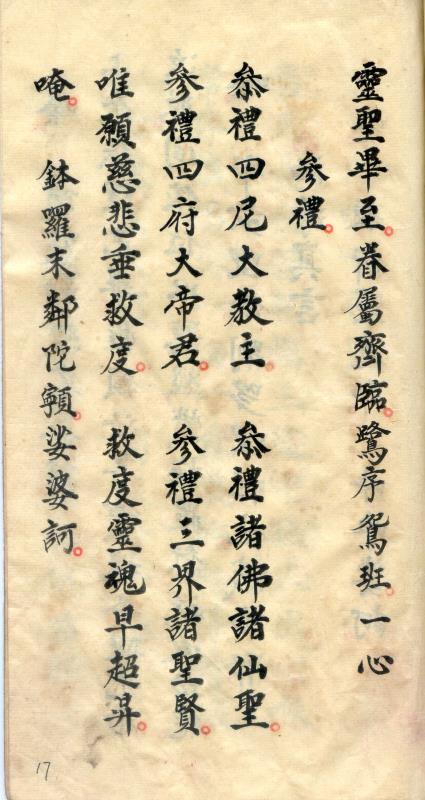 靈聖畢至。眷屬齊臨。鷺序鴛班。一心
參禮。
叅禮四尼大教主。叅禮諸佛諸仙聖。
參禮四府大帝君。參禮三界諸聖賢。
唯願慈悲垂救度。救度靈魂早超昇。
唵。鉢羅末鄰陀𩕳。娑婆訶。
17